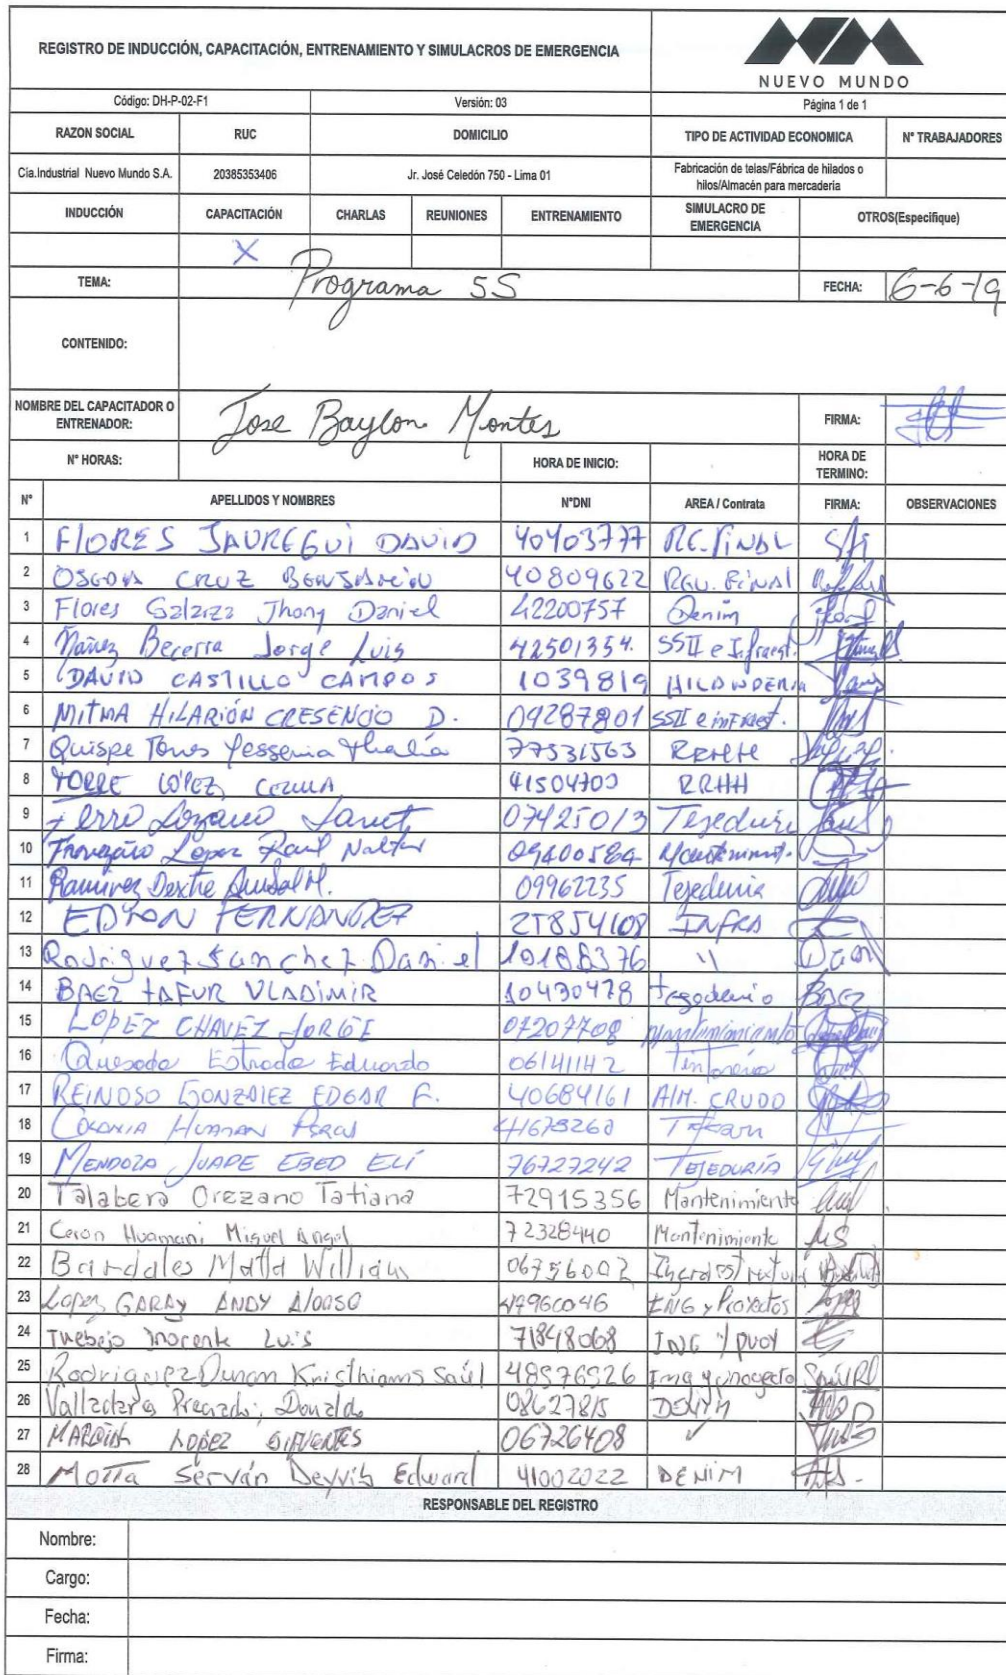 REGISTRO DE INDUCCIÓN, CAPACITACIÓN, ENTRENAMIENTO Y SIMULACROS DE EMERGENCIA
NUEVO MUNDO
Código: DH-P-02-F1 Versión: 03 Página 1 de 1
RAZON SOCIAL RUC DOMICILIO TIPO DE ACTIVIDAD ECONOMICA N° TRABAJADORES
Cía.Industrial Nuevo Mundo S.A. 20385353406 Jr. José Celedón 750 - Lima 01 Fabricación de telas/Fábrica de hilados o
hilos/Almacén para mercadería
INDUCCIÓN CAPACITACIÓN CHARLAS REUNIONES ENTRENAMIENTO SIMULACRO DE
EMERGENCIA OTROS(Especifique)
X
TEMA: Programa 5S FECHA: 6-6-19
CONTENIDO:
NOMBRE DEL CAPACITADOR O
ENTRENADOR: Jose Baylon Montes FIRMA:
N° HORAS: HORA DE INICIO: HORA DE
TERMINO:
N° APELLIDOS Y NOMBRES N°DNI AREA / Contrata FIRMA: OBSERVACIONES
1 FlORES JAUREGUi DAVID 40403777 RE.FiNAL
2 OSGODA CRUZ 40809622 REV. FiNAl
3 Flores Jhony Daniel 42200757 Denim
4 Nañez Becerra Jorge Luis 42501354. SSII e Infraest.
5 DAVID CASTILLO CAMPOS 1039819 HILANDERIA
6 MITMA HILARIÓN CRESENCIO D. 09287801 SSII e inFraest.
7 Quispe Torres Yessenia Thalía 77531563 RRHH
8 TORRE LOPEZ, 41504703 RRHH
9 Ferro Lozano Janet 07425013 Tejeduria
10 Lopez Raul Walter 09400584
11 Ramirez Dextre M. 09962235 Tejeduria
12 EDSON FERNANDEZ 25854108 INFRA
13 Rodriguez Sanchez Daniel 10188376 \\ Dan
14 BAEZ TAFUR VLADIMIR 10430478 BAEZ
15 LOPEZ CHAVEZ JORGE 07207708 Mantenimiento
16 Quesada Estrada Eduardo 06141142 Tintoreria
17 REINOSO GONZALEZ EDGAR F. 40684161 AlM. CRUDO
18 COLONIA HUAMAN 41673260
19 MENDOZA JUAPE EBED ELÍ 76727242 TEJEDURÍA
20 Talabera Orezano Tatiana 72915356 Mantenimiento
21 Ceron Huamani Miguel Angel 72328440 Mantenimiento
22 Bardales Matta William 06756002
23 Lopez GARAY ANDY Alonso 47960046 ING y Proyectos
24 Trebejo Inocente Luis 71848068 ING y proy
25 Rodriguez Duran Kristhians Saúl 48576926 Ing y proyecto
26 Valladares Preciado, Donaldo 08627815 DENIM
27 LOPEZ 06726408 ✓
28 Motta Serván Deyvis Edward 41002022 DENIM
RESPONSABLE DEL REGISTRO
Nombre:
Cargo:
Fecha:
Firma: